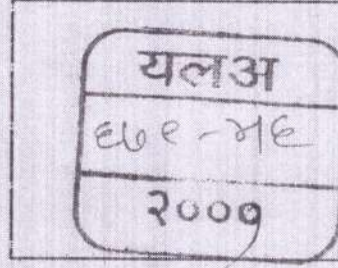 यलअ
६७९-५६
२००१